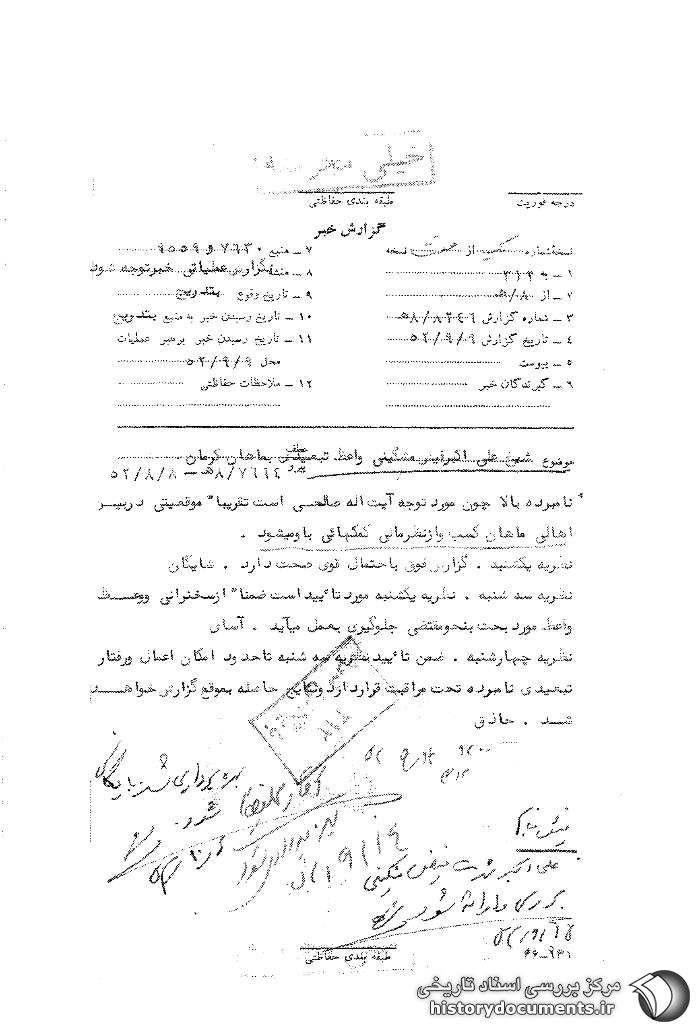 خیلی محرمانه
طبقه بندی حفاظتی
درجه فوریت
گزارش خبر
نسخه شماره یکم از نسخه
۱ ـ به ۳۱۲
۲ ـ از ۸/ه
۳ ـ شماره گزارش ۸۲۴۶/۸ه
۴ ـ تاریخ گزارش ۵۲/۹/۰۹
۵ ـ پیوست
۶ ـ گیرندگان خبر
۷ ـ منبع ۷۶۳۰ و ۹۵۵۹
۸ ـ منشاء گزارش عملیاتی خبر توجه شود
۹ ـ تاریخ وقوع بتدریج
۱۰ ـ تاریخ رسیدن خبر به منبع بتدریج
۱۱ ـ تاریخ رسیدن خبر برهبر عملیات
محل ۵۲/۹/۰۹
۱۲ ـ ملاحظات حفاظتی
موضوع شیخ علی اکبر فیض مشگینی واعظ تبعیدی بماهان کرمان
عطف
پیرو ۷۶۶۴/۸ه ــ ۵۲/۸/۸
نامبرده بالا چون مورد توجه آیت اله صالحی است تقریبا" موقعیتی در بین
اهالی ماهان کسب و از نظر مالی کمکهائی باو میشود .
نظریه یکشنبه . گزارش فوق باحتمال قوی صحت دارد . شایگان
نظریه سه شنبه . نظریه یکشنبه مورد تائید است ضمنا" از سخنرانی و وعظ
واعظ مورد بحث بنحو مقتضی جلوگیری بعمل میآید . آسای
نظریه چهارشنبه . ضمن تائید نظریه سه شنبه تا حدود امکان اعمال و رفتار
تبعیدی نامبرده تحت مراقبت قرار دارد و نتایج حاصله بموقع گزارش خواهد
شد . حاذق
بهره برداری شد بایگانی
شود
علی اکبر فیض مشکینی
طبقه بندی حفاظتی
مرکز بررسی اسناد تاریخی
historydocuments.ir